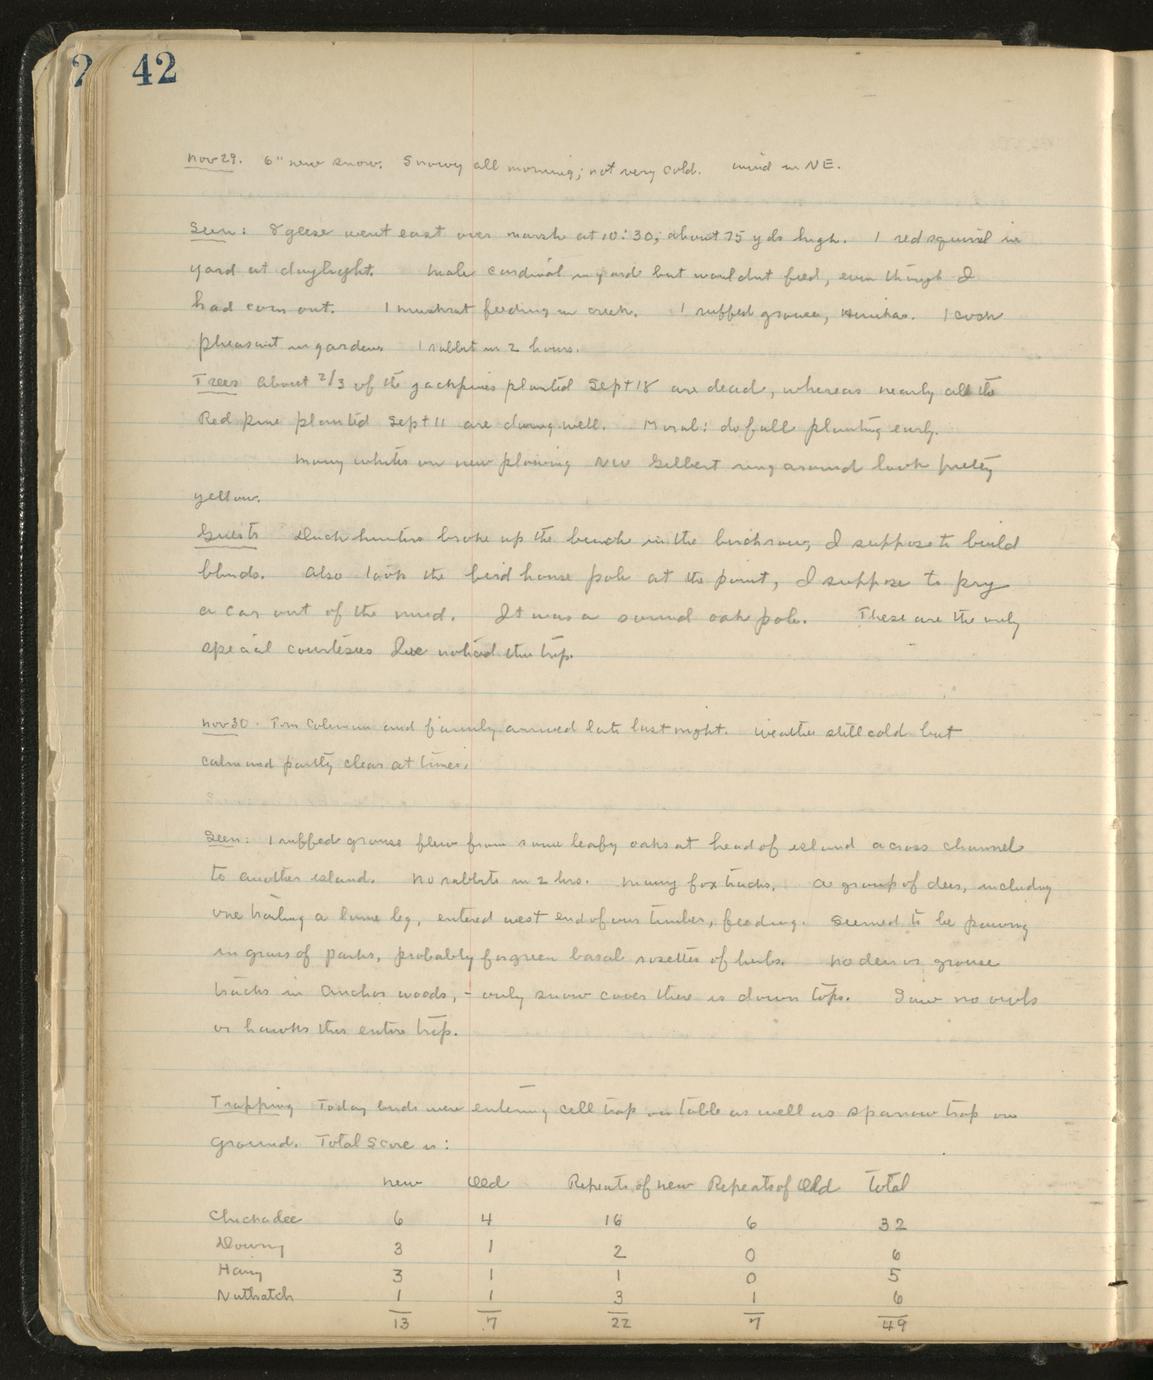 2 42
Nov 29. 6" new snow. Snowy all morning; not very cold. Wind in NE.
Seen: 8 geese went east over marsh at 10:30; about 75 yds high. 1 red squirrel in
yard at daylight. Male cardinal in yard but wouldnt feed, even though I
had corn out. 1 muskrat feeding in creek. 1 ruffed grouse, 1 cock
pheasant in garden 1 rabbit in 2 hours.
Trees About 2/3 of the jackpines planted Sept 18 are dead, whereas nearly all the
Red pine planted Sept 11 are doing well. Moral: do fall planting early.
Many whites on new plowing NW Gilbert ring around look pretty
yellow.
Guests Duck hunters broke up the bench in the birch row, I suppose to build
blinds. Also took the bird house pole at the point, I suppose to pry
a car out of the mud. It was a sound oak pole. These are the only
special courtesies Ive noticed this trip.
Nov 30. Tom Coleman and family arrived late last night. Weather still cold but
calm and partly clear at times.
Seen: 1 ruffed grouse flew from some leafy oaks at head of island across channel
to another island. No rabbits in 2 hrs. Many fox tracks. A group of deer, including
one trailing a lame leg, entered west end of our timber, feeding. Seemed to be pawing
in grass of parks, probably for green basal rosettes of herbs. No deer or grouse
tracks in Anchor woods, - only snow cover there is down tops. Saw no owls
or hawks this entire trip.
Trapping Today birds were entering cell trap on table as well as sparrow trap on
ground. Total Score is:
New Old Repeats of new Repeats of Old Total
Chickadee 6 4 16 6 32
Downy 3 1 2 0 6
Hairy 3 1 1 0 5
Nuthatch 1 1 3 1 6
13 7 22 7 49